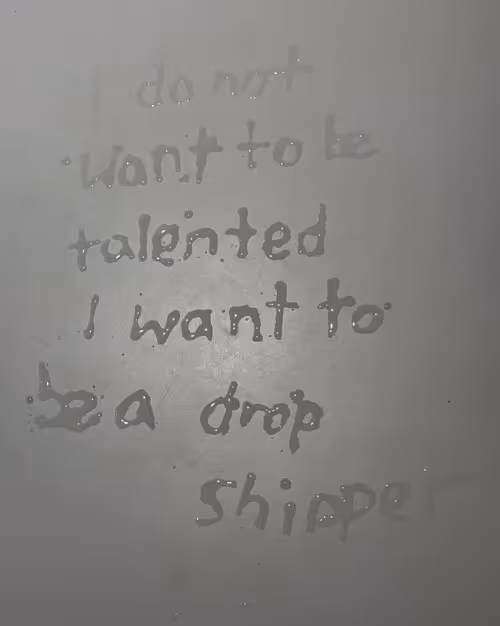 I do not
want to be
talented
I want to
be a drop
shipper